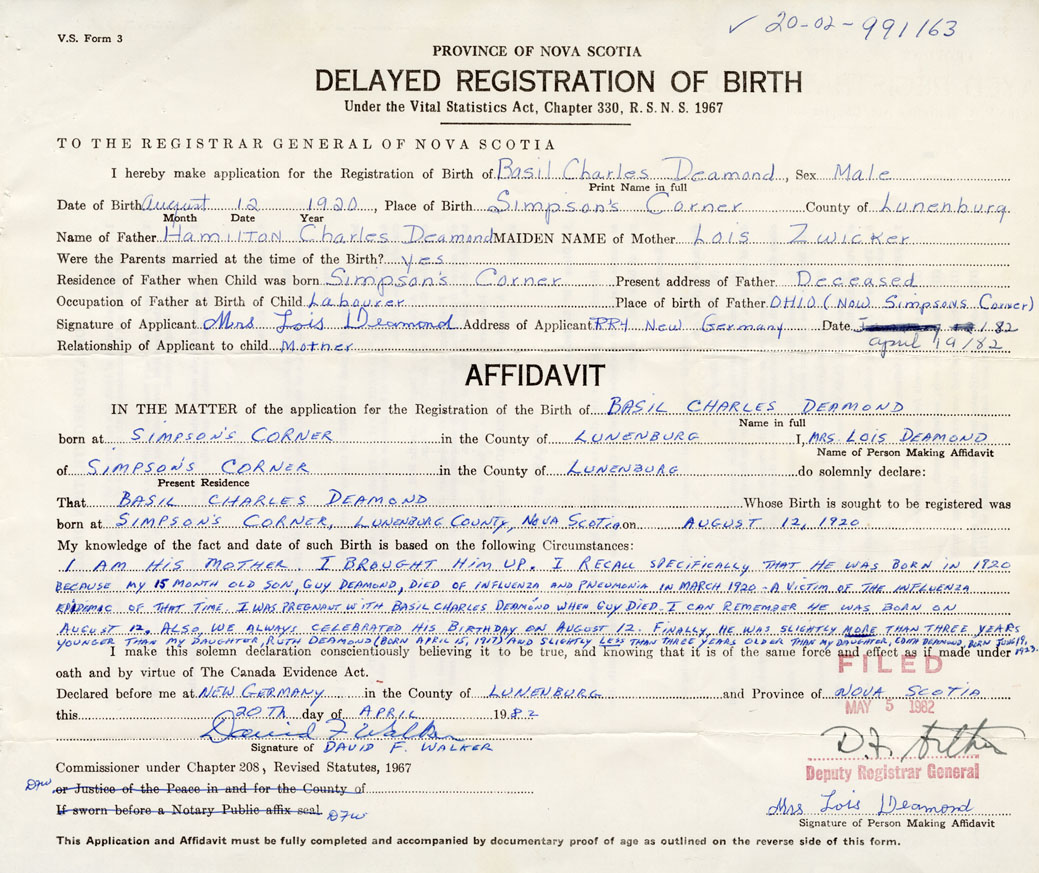 ✓ 20-02-991163
V.S. Form 3
PROVINCE OF NOVA SCOTIA
DELAYED REGISTRATION OF BIRTH
Under the Vital Statistics Act, Chapter 330, R.S.N.S. 1967
TO THE REGISTRAR GENERAL OF NOVA SCOTIA
I hereby make application for the Registration of Birth of Basil Charles Deamond, Sex Male
Print Name in full
Date of Birth August 12 1920, Place of Birth Simpson's Corner County of Lunenburg.
Month Date Year
Name of Father Hamilton Charles Deamond MAIDEN NAME of Mother Lois Zwicker
Were the Parents married at the time of the Birth? yes
Residence of Father when Child was born Simpson's Corner Present address of Father Deceased
Occupation of Father at Birth of Child Labourer Place of birth of Father OHIO (Now Simpsons Corner)
Signature of Applicant Mrs Lois Deamond Address of Applicant RR4 New Germany Date /82
Relationship of Applicant to child Mother april 19/82
AFFIDAVIT
IN THE MATTER of the application for the Registration of the Birth of BASIL CHARLES DEAMOND
Name in full
born at SIMPSON'S CORNER in the County of LUNENBURG I, MRS. LOIS DEAMOND
Name of Person Making Affidavit
of SIMPSON'S CORNER in the County of LUNENBURG do solemnly declare:
Present Residence
That BASIL CHARLES DEAMOND Whose Birth is sought to be registered was
born at SIMPSON'S CORNER, LUNENBURG COUNTY, NOVA SCOTIA on AUGUST 12, 1920
My knowledge of the fact and date of such Birth is based on the following Circumstances:
I AM HIS MOTHER. I BROUGHT HIM UP. I RECALL SPECIFICALLY THAT HE WAS BORN IN 1920
BECAUSE MY 15 MONTH OLD SON, GUY DEAMOND, DIED OF INFLUENZA AND PNEUMONIA IN MARCH 1920 - A VICTIM OF THE INFLUENZA
EPIDEMIC OF THAT TIME. I WAS PREGNANT WITH BASIL CHARLES DEAMOND WHEN GUY DIED. I CAN REMEMBER HE WAS BORN ON
AUGUST 12. ALSO, WE ALWAYS CELEBRATED HIS BIRTHDAY ON AUGUST 12. FINALLY, HE WAS SLIGHTLY MORE THAN THREE YEARS
YOUNGER THAN MY DAUGHTER, RUTH DEAMOND (BORN APRIL 15, 1917) AND SLIGHTLY LESS THAN THREE YEARS OLDER THAN MY DAUGHTER, DEAMOND, BORN JUNE 19, 1923.
I make this solemn declaration conscientiously believing it to be true, and knowing that it is of the same force and effect as if made under
oath and by virtue of The Canada Evidence Act.
FILED
Declared before me at NEW GERMANY in the County of LUNENBURG and Province of NOVA SCOTIA
MAY 5 1982
this 20TH day of APRIL 1982
David F Walker
Signature of DAVID F. WALKER
Deputy Registrar General
Commissioner under Chapter 208, Revised Statutes, 1967
DFW or Justice of the Peace in and for the County of
If sworn before a Notary Public affix seal. DFW
Mrs Lois Deamond
Signature of Person Making Affidavit
This Application and Affidavit must be fully completed and accompanied by documentary proof of age as outlined on the reverse side of this form.